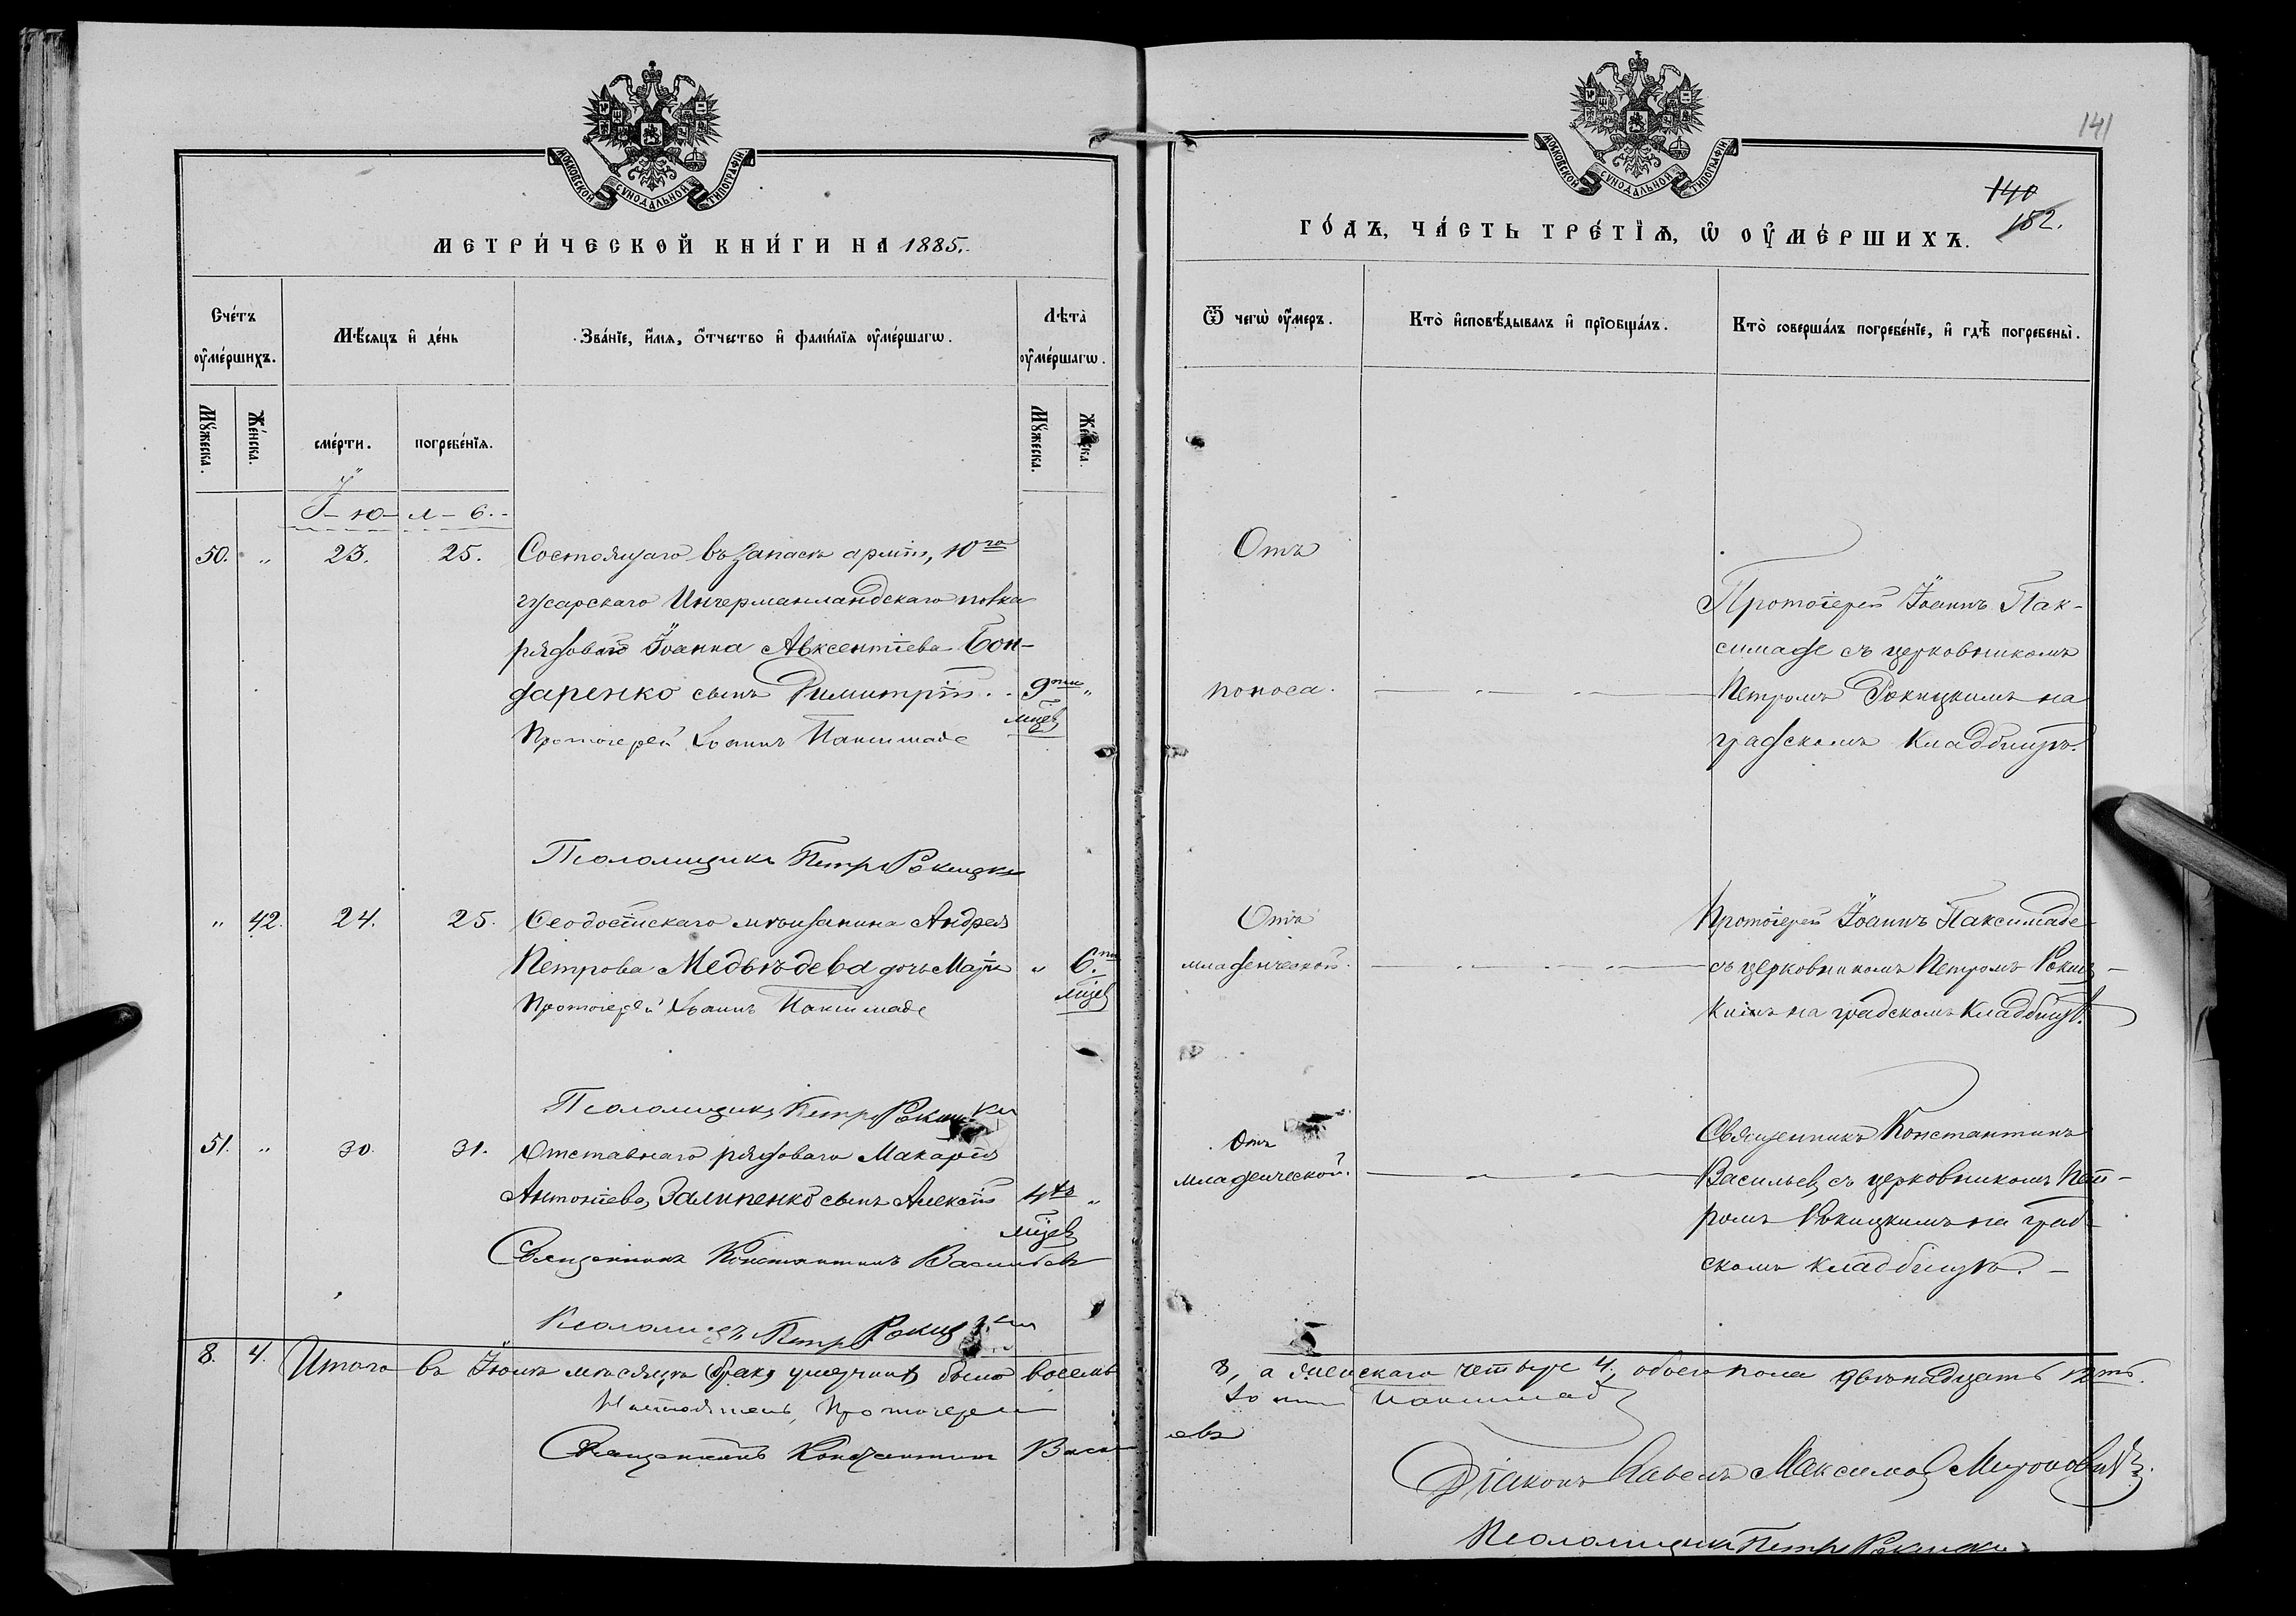 МОСКОВСКОЙ СѴНОДАЛЬНОЙ ТИПОГРАФІИ.
МЕТРИ́ЧЕСКОЙ КНИ́ГИ НА 1885.
Сче́тъ ᲂу҆ме́ршихъ.
Мѣ́сяцъ и҆ де́нь
Зва́нїе, и҆́мѧ, ѻ҆́тчество и҆ фами́лїѧ ᲂу҆ме́ршагѡ.
Лѣта̀ ᲂу҆ме́ршагѡ.
Мꙋ́жеска. Же́нска. сме́рти. погребе́нїѧ. Мꙋ́жеска. Же́нска.
І - ю - л - ь. -
50. " 23. 25. Состоящаго въ запасѣ арміи, 10го
гусарскаго Ингерманландскаго полка
рядоваго Іоанна Авксентіева Бон-
даренко сынъ Димитрій. 9ти "
мцев
Протоіерей Іоаннъ Паксимаде
Псаломщикъ Петръ Рокицкій
" 42. 24. 25. Ѳеодосійскаго мѣщанина Андрея
Петрова Медвѣдева дочь Марія " 6ти
мцев
Протоіерей Іоаннъ Паксимаде
Псаломщикъ Петръ Рокицкій
51. " 30. 31. Отставнаго рядоваго Макарія
Антоніева Залипенко сынъ Алексій 4хъ "
мцевъ
Священникъ Константинъ Васильевъ
Псаломщ. Петръ Рокицкій
8. 4. Итого въ Іюлѣ мѣсяцѣ умершихъ было восемь
Настоятель, Протоіерей
Священникъ Константинъ Васил
141
140
152.
МОСКОВСКОЙ СѴНОДАЛЬНОЙ ТИПОГРАФІИ.
ГО́ДЪ, ЧА́СТЬ ТРЕ́ТЇѦ, Ѡ҆ ОУ҆МЕ́РШИХЪ.
Ѿ чегѡ̀ ᲂу҆́меръ.
Кто̀ и҆сповѣ́дывалъ и҆ прїѻбща́лъ.
Кто̀ соверша́лъ погребе́нїе, и҆ гдѣ̀ погребены̀.
Отъ
поноса.
Протоіерей Іоаннъ Пак-
симаде съ церковникомъ
Петромъ Рокицкимъ на
градскомъ кладбищѣ.
Отъ
младенческой.
Протоіерей Іоаннъ Паксимаде
съ церковникомъ Петромъ Рокиц-
кимъ на градскомъ кладбищѣ.
Отъ
младенческой.
Священникъ Константинъ
Васильев съ церковникомъ Пет-
ромъ Рокицкимъ на град-
скомъ кладбищѣ. -
8, а женскаго четыре 4, обоего пола двѣнадцать
Іоаннъ Паксимаде
евъ
Діаконъ Павелъ Максимов Мироновичъ.
Псаломщикъ Петръ Рокицкій